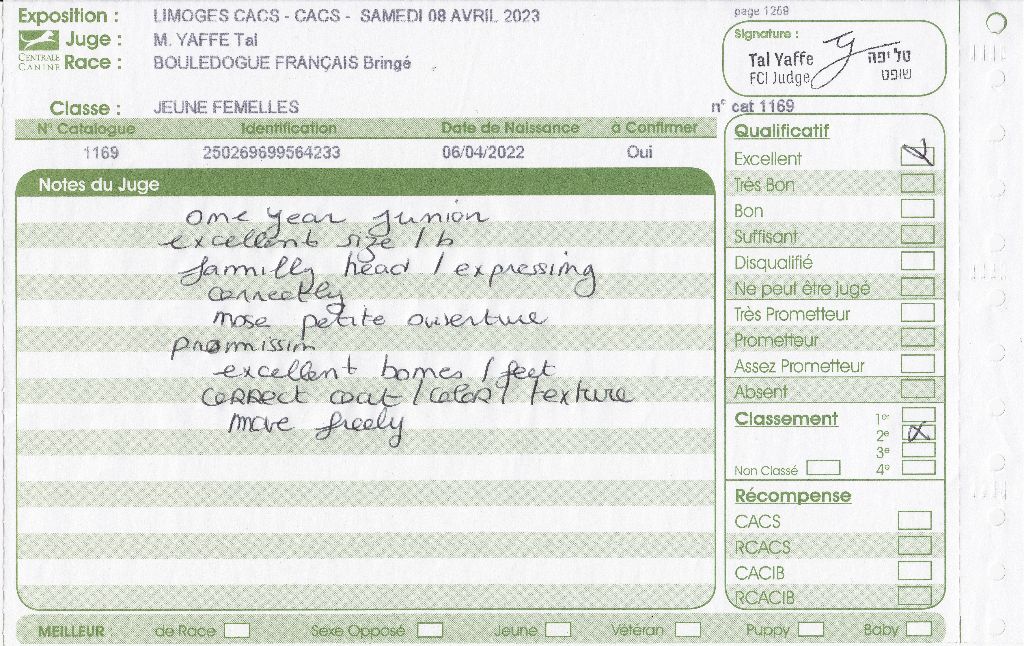 Exposition : LIMOGES CACS - CACS - SAMEDI 08 AVRIL 2023
Juge : M. YAFFE Tal
CENTRALE CANINE
Race : BOULEDOGUE FRANÇAIS Bringé
Classe : JEUNE FEMELLES
page 1268
Signature :
Tal Yaffe טל יפה
FCI Judge שופט
n° cat 1169
N° Catalogue Identification Date de Naissance à Confirmer
1169 250269699564233 06/04/2022 Oui
Notes du Juge
one year junior
excellent size / b
familly head / expressing
correctly
nose petite ouverture
excellent bones / feet
correct coat / color / texture
move freely
Qualificatif
Excellent
Très Bon
Bon
Suffisant
Disqualifié
Ne peut être jugé
Très Prometteur
Prometteur
Assez Prometteur
Absent
Classement 1er
2e
3e
Non Classé 4e
Récompense
CACS
RCACS
CACIB
RCACIB
MEILLEUR : de Race Sexe Opposé Jeune Vétéran Puppy Baby